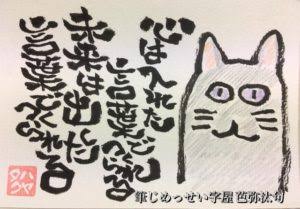 心は入れた
言葉でつくられる
未来は出した
言葉でつくられる
ハヤタク
筆じめっせい字屋 芭弥汰句